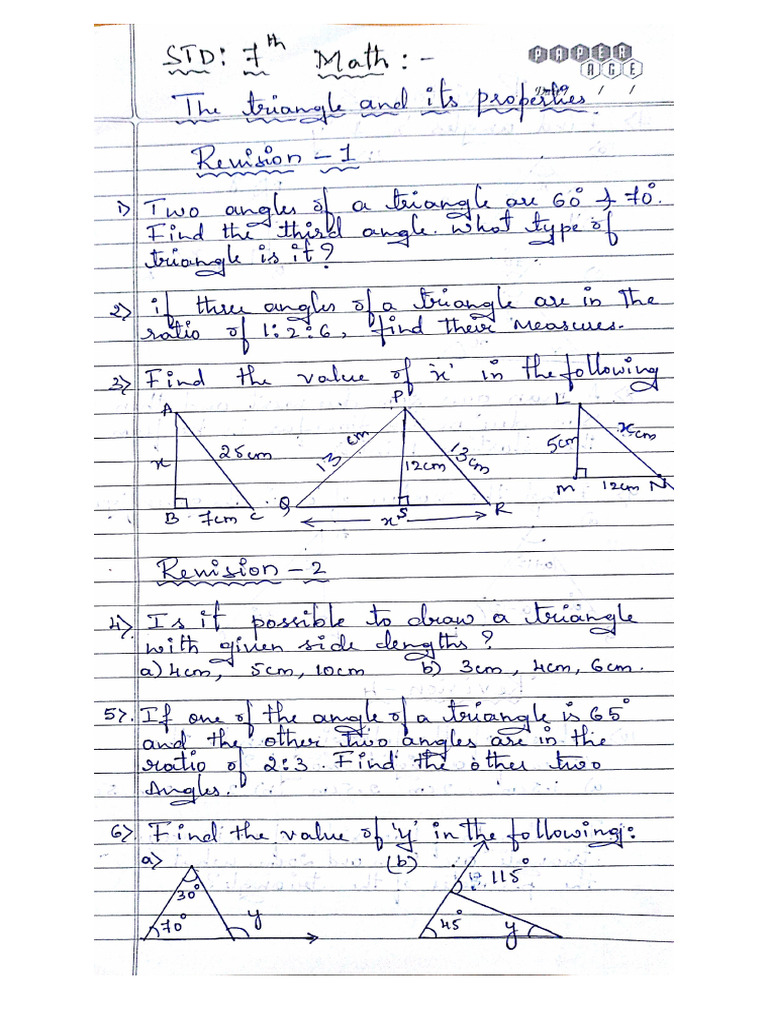 STD: 7th Math :-
PAPER
AGE
/ /
The triangle and its properties.
Revision - 1
1) Two angles of a triangle are 60° & 70°.
Find the third angle. What type of
triangle is it?
2) if three angles of a triangle are in the
ratio of 1:2:6, find their measures.
3) Find the value of 'x' in the following
A
x
25cm
B 7cm C
P
13 cm
12cm
13cm
Q S R
x
L
5cm
x cm
M 12cm N
Revision - 2
4) Is it possible to draw a triangle
with given side lengths?
a) 4cm, 5cm, 10cm b) 3cm, 4cm, 6cm.
5). If one of the angle of a triangle is 65°
and the other two angles are in the
ratio of 2:3. Find the other two
Angles.
6). Find the value of 'y' in the following:
a) (b)
30°
70° y
115°
45° y